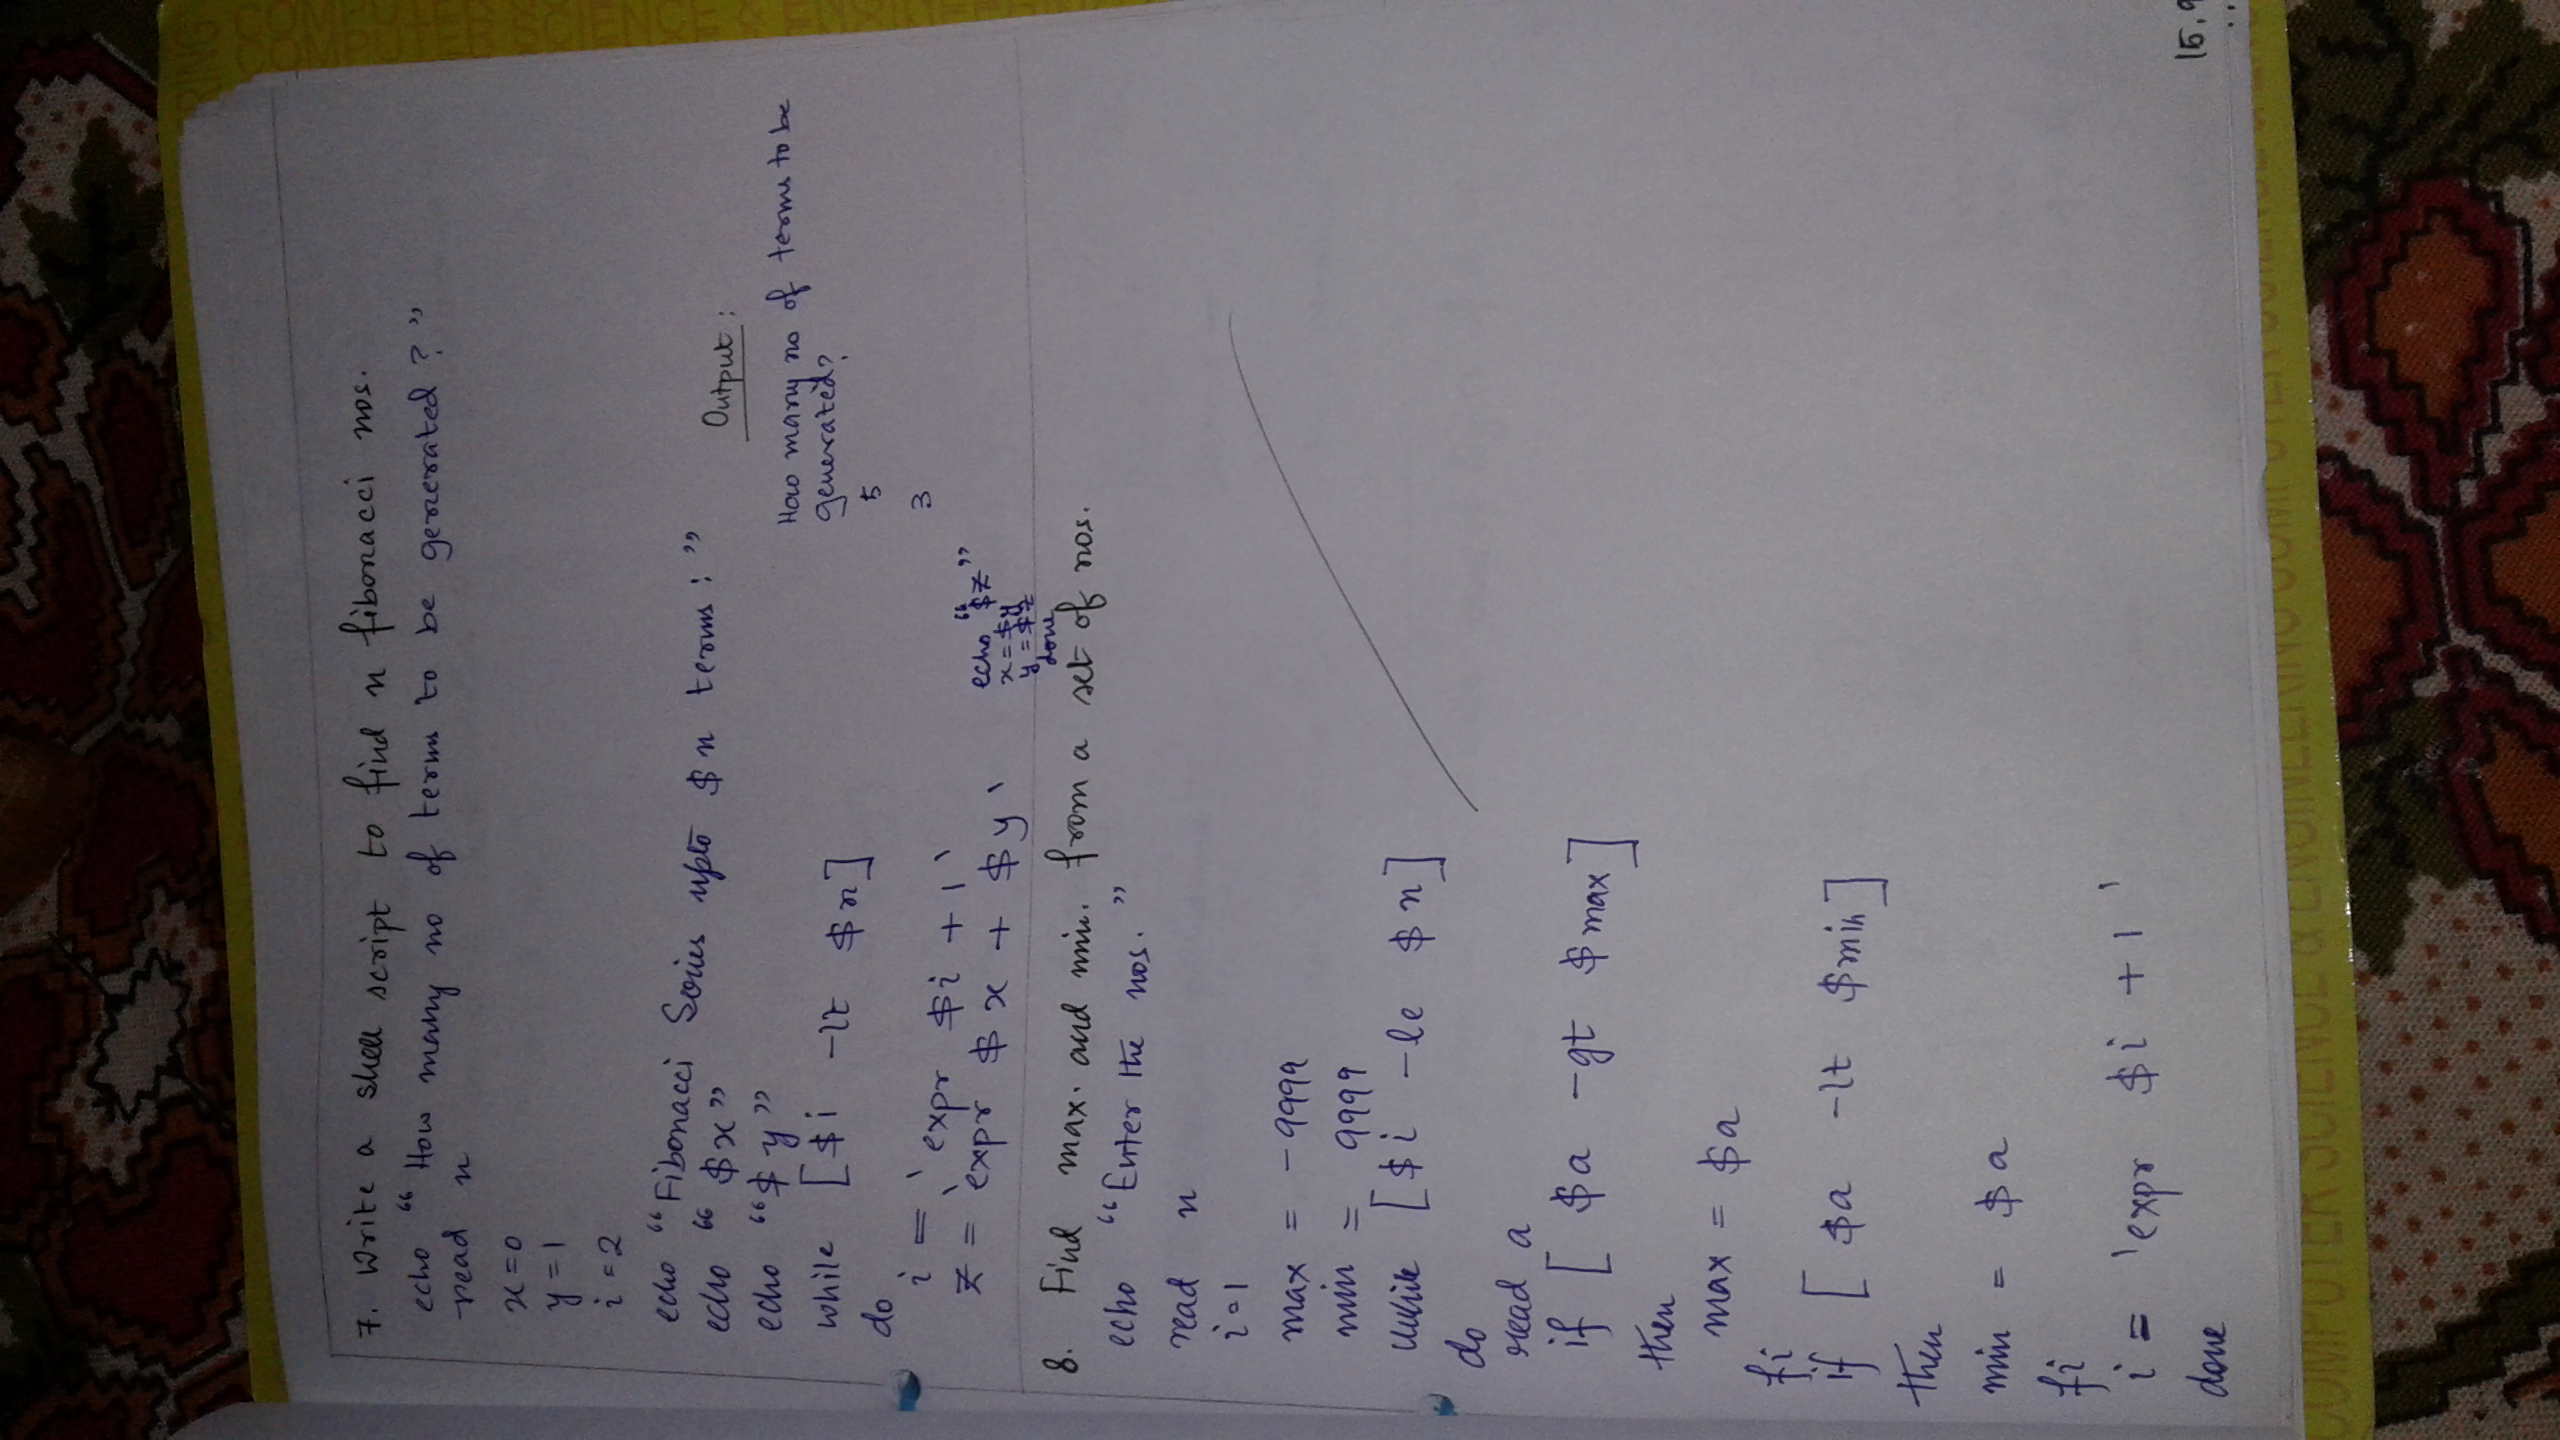 7. Write a shell script to find n fibonacci nos.
echo "How many no of terms to be generated?"
read n
x=0
y=1
i=2
echo "Fibonacci Series upto $n terms:"
echo "$x"
echo "$y"
while [$i -lt $n]
do
i = `expr $i + 1`
z = `expr $x + $y`
echo "$z"
x=$y
y=$z
done
Output:
How many no of terms to be
generated?
5
3
8. Find max. and min. from a set of nos.
echo "Enter the nos."
read n
i=1
max = -9999
min = 9999
while [$i -le $n]
do
read a
if [ $a -gt $max]
then
max = $a
fi
if [ $a -lt $min]
then
min = $a
fi
i = 'expr $i + 1'
done
COMPUTER SCIENCE & ENGINEERING COMPUTER SCIENCE &